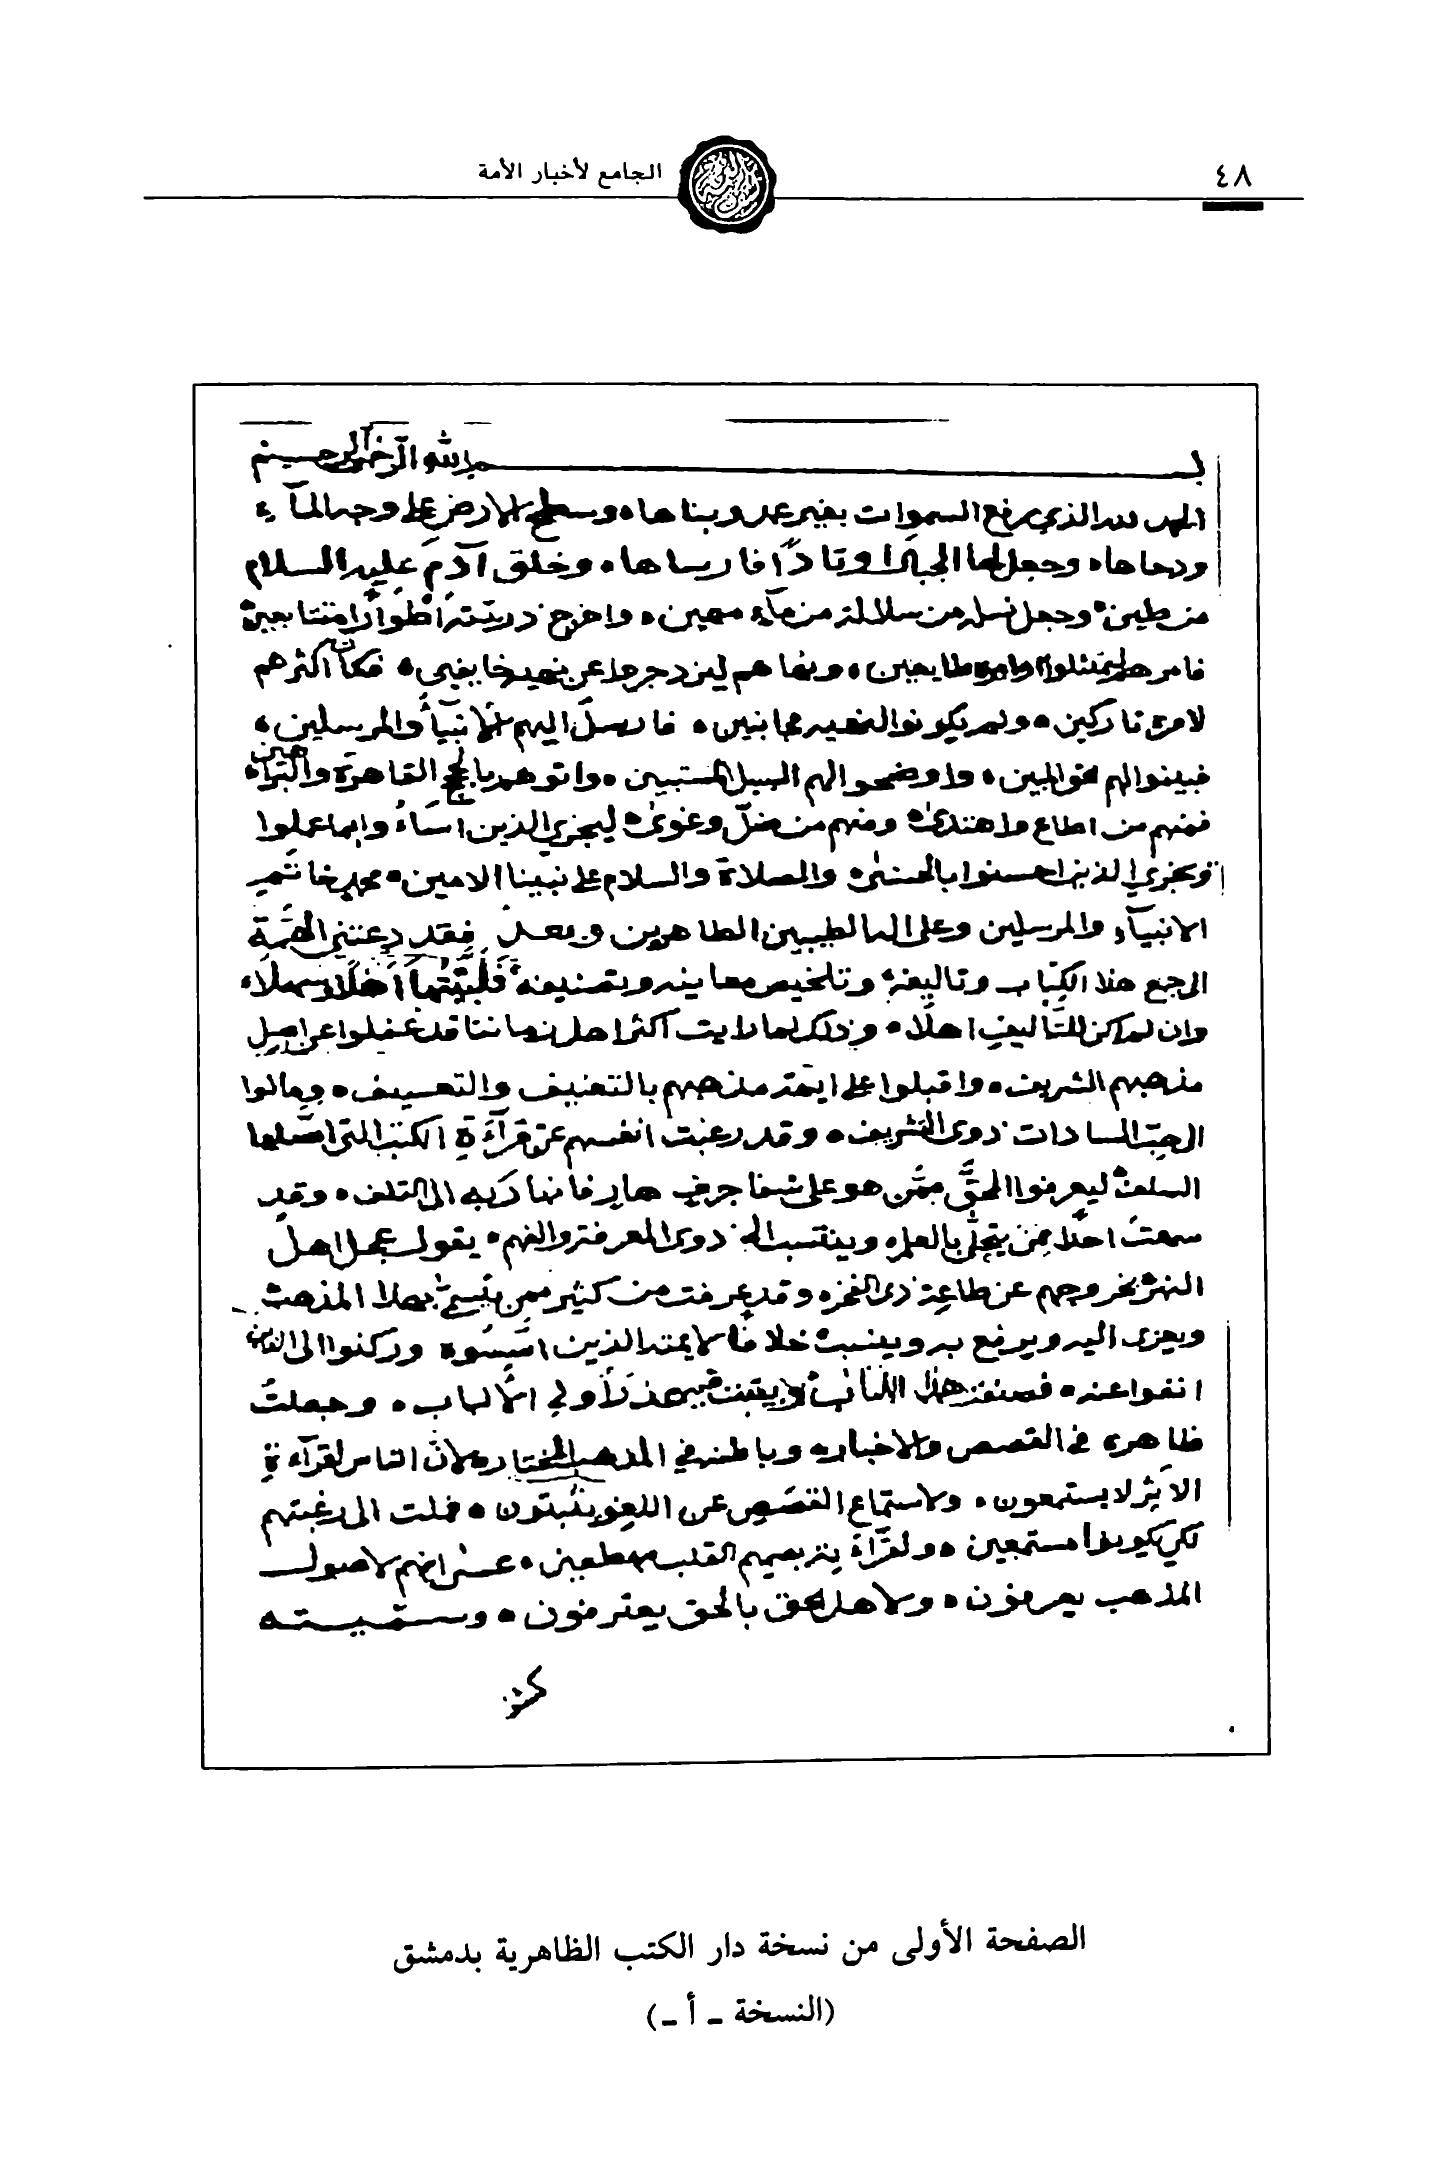 ٤٨
الجامع لأخبار الأمة
بسم الله الرحمن الرحيم
الحمد لله الذي رفع السموات بغير عمد وبناها ه وسطح الارض على وجه المآء
ودحاها ه وجعل لها الجبال اوتادًا فارساها ه وخلق آدم عليه السلام
من طين ه وجعل نسله من سلالة من مآء مهين ه واخرج ذريته اطوارًا متتابعين ه
فامرهم ليمتثلوا اوامره طايعين ه ونهاهم لينزدجروا عن نهيه خايفين ه فكان اكثرهم
لامره تاركين ه ولم يكونوا لنهيه مجانبين ه فارسل اليهم الانبيآء والمرسلين ه
فبينوا لهم الحق المبين ه واوضحوا لهم السبيل المستبين ه واتوهم بالحجج القاهرة والبراهين ه
فمنهم من اطاع واهتدى ه ومنهم من ضل وغوى ه ليجزي الذين اساءُوا بما عملوا
ويجزي الذين احسنوا بالحسنى ه والصلاة والسلام على نبينا الامين ه محمد خاتم
الانبيآء والمرسلين وعلى اله الطيبين الطاهرين وبعد فقد دعتني الهمّة
الى جمع هذا الكتاب وتاليفه ه وتلخيص معاينه وتصنيفه ه فلبّيتها اهلًا وسهلًا ه
وان لم اكن للتّاليف اهلًا ه وذلك لما رايت اكثر اهل زماننا قد غفلوا عن اصل
مذهبهم الشريف ه واقبلوا على ايمة مذهبهم بالتعنيف والتعسيف ه ومالوا
الى حب السادات ذوي التشريف ه وقد رغبت انفسهم عن قرآءة الكتب التي اصّلها
السلف ه ليعرفوا الحقّ ممّن هو على شفا جرف هار فانهار به الى التلف ه وقد
سمعت احدًا ممن يتحلّى بالعلم ه وينتسب الى ذوي المعرفة والفهم ه يقول بجهل اهل
النهر بخروجهم عن طاعة ذي الفخر ه وقد عرفت من كثير ممن يتسمّى بهذا المذهب
ويعزى اليه ويرفع به وينسب ه خلافًا لايمته الذين اسّسوه وركنوا الى الذين
انفوا عنه ه فصنفت هذا الكتاب ه وبيّنت فيه عذرًا لأولي الألباب ه وجعلتُ
ظاهره في القصص والاخبار ه وباطنه في المذهب المختار ه لانّ الناس لقرآءة
الاَثر لا يستمعون ه ولاستماع القصص عن اللغو ينبتون ه فملت الى رغبتهم
لكي يكونوا مستمعين ه ولقرآءة بصميم القلب مهطعين ه عسى انهم لاصول
المذهب يعرفون ه ولاهل الحق بالحق يعترفون ه وسمّيته
الصفحة الأولى من نسخة دار الكتب الظاهرية بدمشق
(النسخة ـ أ ـ)